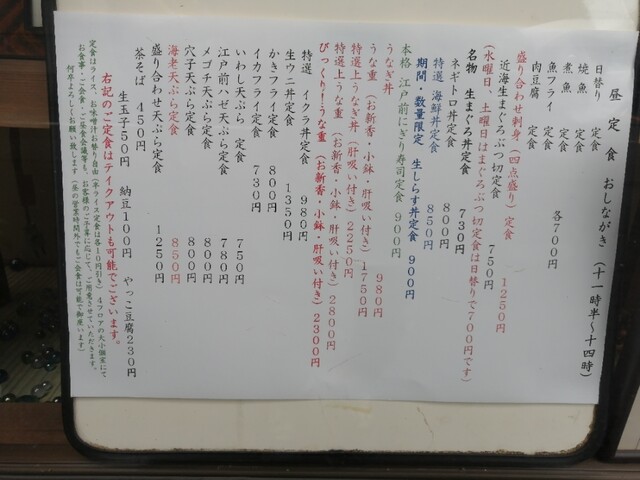 昼定食 おしながき (十一時半～十四時)
日替り 定食
焼魚 定食
煮魚 定食
魚フライ 定食
肉豆腐 定食
各700円
盛り合わせ刺身(四点盛り)定食 1250円
近海生まぐろぶつ切定食 750円
(水曜日、土曜日はまぐろぶつ切定食は日替りで700円です)
名物 生まぐろ丼定食 730円
ネギトロ丼定食 800円
特選 海鮮丼定食 850円
期間・数量限定 生しらす丼定食 900円
本格 江戸前にぎり寿司定食 900円
うなぎ丼 980円
うな重(お新香・小鉢・肝吸い付き) 1750円
特選上うなぎ丼(肝吸い付き) 2250円
特選上うな重(お新香・小鉢・肝吸い付き) 2800円
びっくり!うな重(お新香・小鉢・肝吸い付き) 2300円
特選 イクラ丼定食 980円
生ウニ丼定食 1350円
かきフライ定食 800円
イカフライ定食 730円
いわし天ぷら 定食 750円
江戸前ハゼ天ぷら定食 780円
メゴチ天ぷら定食 800円
穴子天ぷら定食 800円
海老天ぷら定食 850円
盛り合わせ天ぷら定食 1250円
茶そば 450円
生玉子50円 納豆100円 やっこ豆腐230円
右記のご定食はテイクアウトも可能でございます。
定食はライス、お味噌汁お替り自由(半ライス定食は各10円引き)4フロアの大小個室にて
お食事・ご会食・ご定食会議等も、お客様のご予算に応じて、ご用意させていただきます。
何卒よろしくお願い致します(昼の営業時間外でもご会食は可能で御座います)